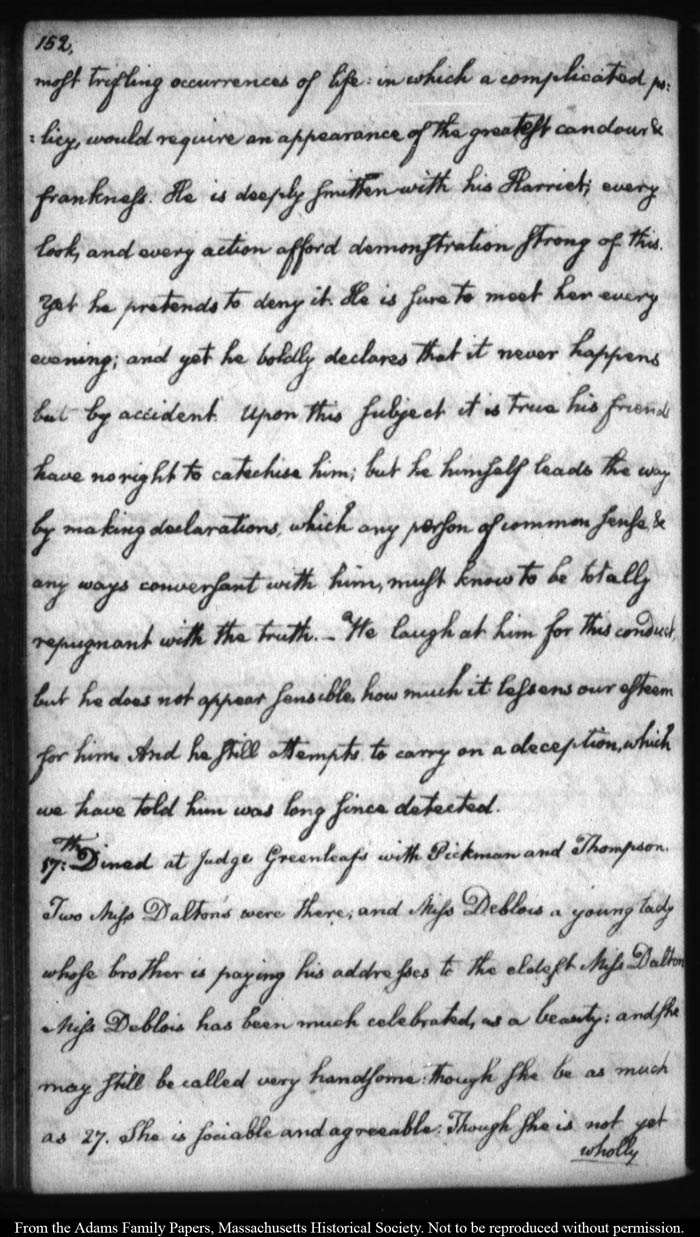 152,
most trifling occurrences of life: in which a complicated po:
:licy, would require an appearance of the greatest candour &
frankness. He is deeply smitten with his Harriet; every
look, and every action afford demonstration strong of this.
Yet he pretends to deny it. He is sure to meet her every
evening; and yet he boldly declares that it never happens
but by accident. Upon this subject it is true his friends
have no right to catechise him; but he himself leads the way
by making declarations, which any person of common sense, &
any ways conversant with him, must know to be totally
repugnant with the truth. — We laugh at him for this conduct,
but he does not appear sensible, how much it lessens our esteem
for him. And he still attempts to carry on a deception, which
we have told him was long since detected.
17:th Dined at Judge Greenleaf's with Pickman and Thompson.
Two Miss Dalton's were there; and Miss Deblois a young lady
whose brother is paying his addresses to the eldest Miss Dalton
Miss Deblois has been much celebrated, as a beauty: and she
may still be called very handsome: though she be as much
as 27. She is sociable and agreeable: Though she is not yet
wholly
From the Adams Family Papers, Massachusetts Historical Society. Not to be reproduced without permission.